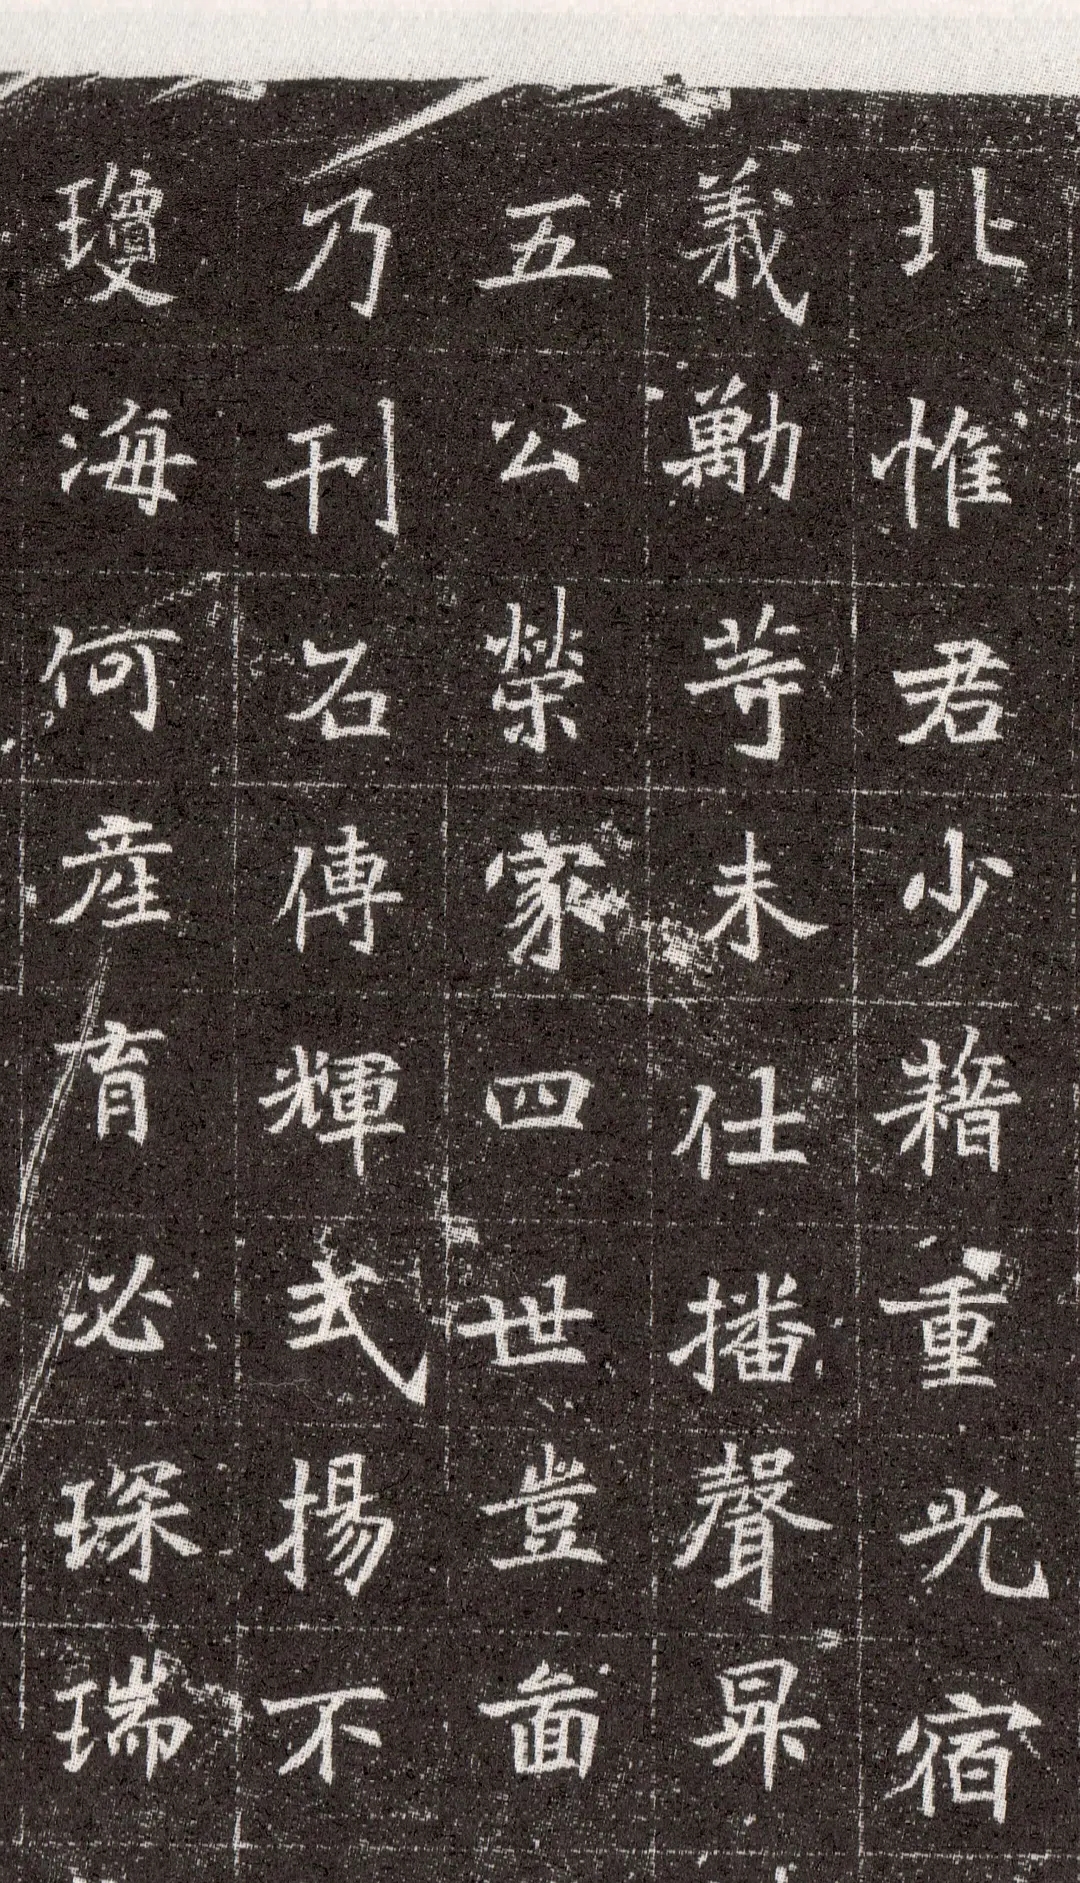 北惟君少藉重光宿
義勱等未仕播聲昇
五公榮家四世豈面
乃刊名傳輝式揚不
瓊海何産育必琛瑞